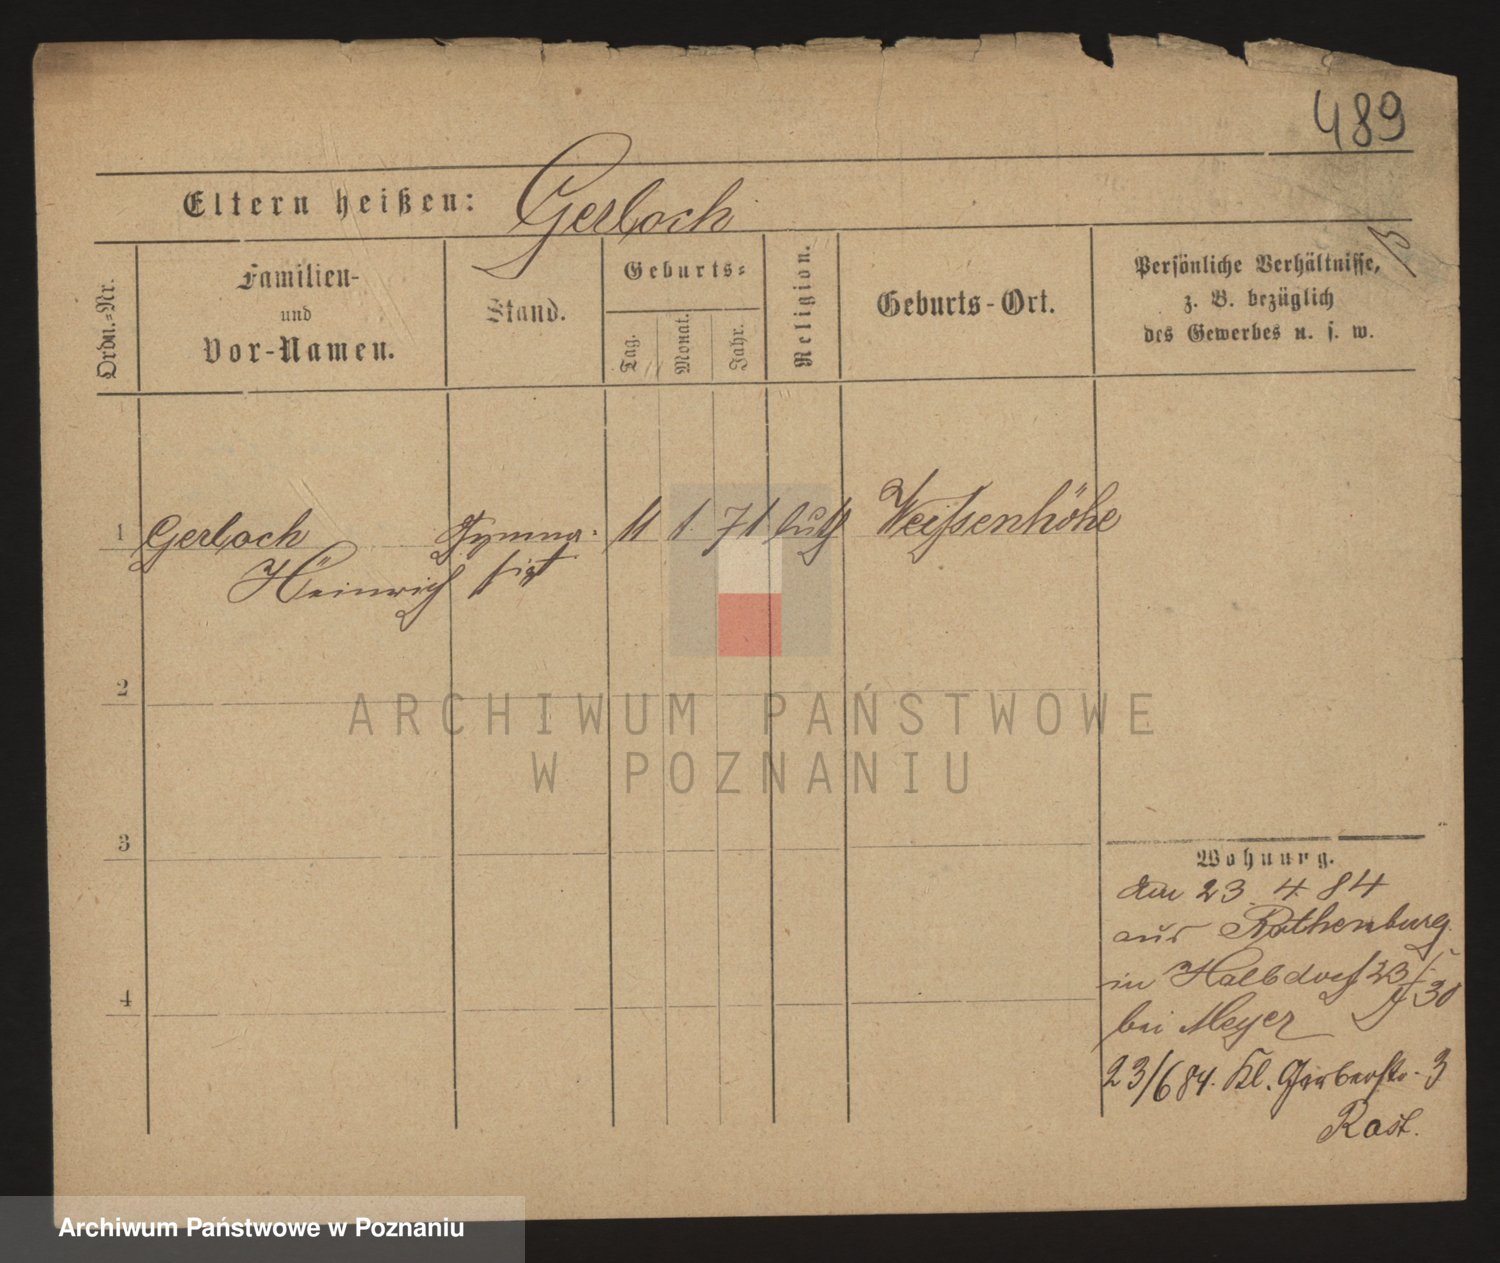 489
Eltern heißen: Gerlach
Ordn.-Nr.
Familien-
und
Vor-Namen.
Stand.
Geburts-
Tag.
Monat.
Jahr.
Religion.
Geburts-Ort.
Persönliche Verhältnisse,
z. B. bezüglich
des Gewerbes u. s. w.
1 Gerlach Gymna- 11 1. 71 luth Weissenhöhe
Heinrich siast
2
ARCHIWUM PAŃSTWOWE
W POZNANIU
3
4
Wohnung.
den 23. 4. 84
aus Rothenburg
in Halbdorf 23/ 30
bei Meyer
23/6 84. Kl. Gerberstr. 3
Rast.
Archiwum Państwowe w Poznaniu